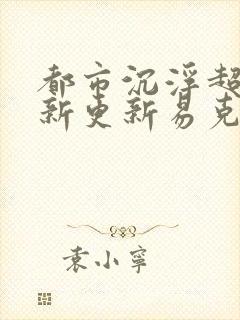 都市沉浮超
新更新易克
袁小寧